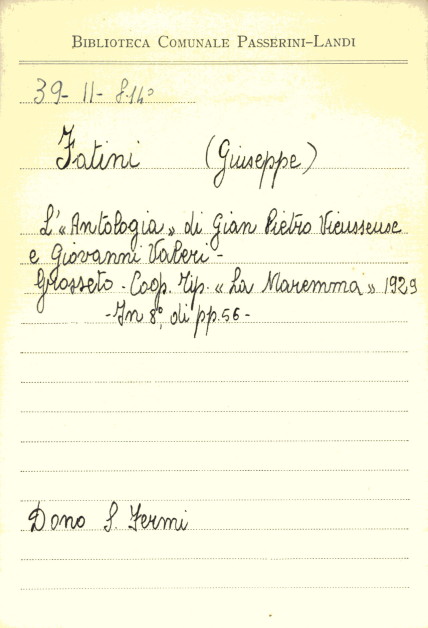 BIBLIOTECA COMUNALE PASSERINI-LANDI
39- II- 8.14°
Fatini (Giuseppe)
L'«Antologia» di Gian Pietro Vieusseuse
e Giovanni Valeri -
Grosseto - Coop. Tip. «La Maremma» 1929
- In 8°, di pp. 56 -
Dono S. Fermi